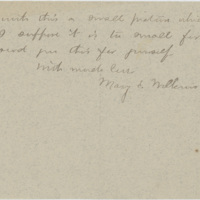 this is a small picture
I suppose it is to small for
you this for yourself
With much love
Mary E. Wilkins